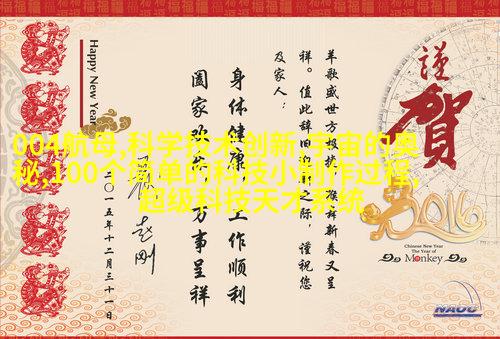 004航母,科学技术创新,宇宙的奥
秘,100个简单的科技小制作过程,
超级科技天才系统
謹賀
2016
Chinese New Year
The Year of
Monkey
NAOC
羊歌盛世方 新春又呈
祥。值此辞旧迎新之际，谨祝您
及家人：
身体健康 工作顺利
阖家欢 万事呈祥
赵刚
二〇一五年十二月三十一日
Happy New Year